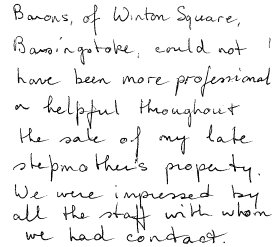 Barons, of Winton Square,
Basingstoke, could not
have been more professional
or helpful throughout
the sale of my late
stepmother's property.
We were impressed by
all the staff with whom
we had contact.